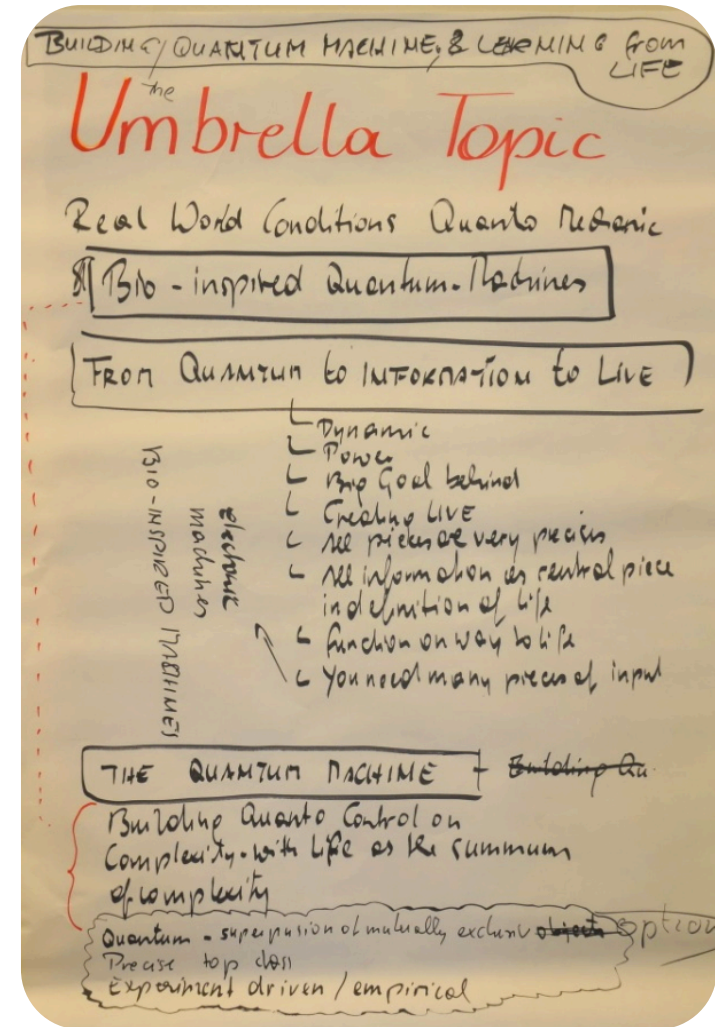 BUILDING QUANTUM MACHINES & LERNING from
LIFE
the
Umbrella Topic
Real World Conditions Quanto Mechanic
Bio-inspired Quantum-Machines
FROM QUANTUM to INFORMATION to LIVE
Dynamic
Power
Big Goal behind
Creating LIVE
All pieces are very precise
All information as central piece
in definition of life
function on way to life
You need many pieces of input
electronic
machines
BIO-INSPIRED MACHINES
THE QUANTUM MACHINE + Building Qu
Building Quanto Control on
Complexity-with Life as the summum
of complexity
Quantum - superpusion of mutually exclusiv objects option
Precise top class
Experiment driven / empirical